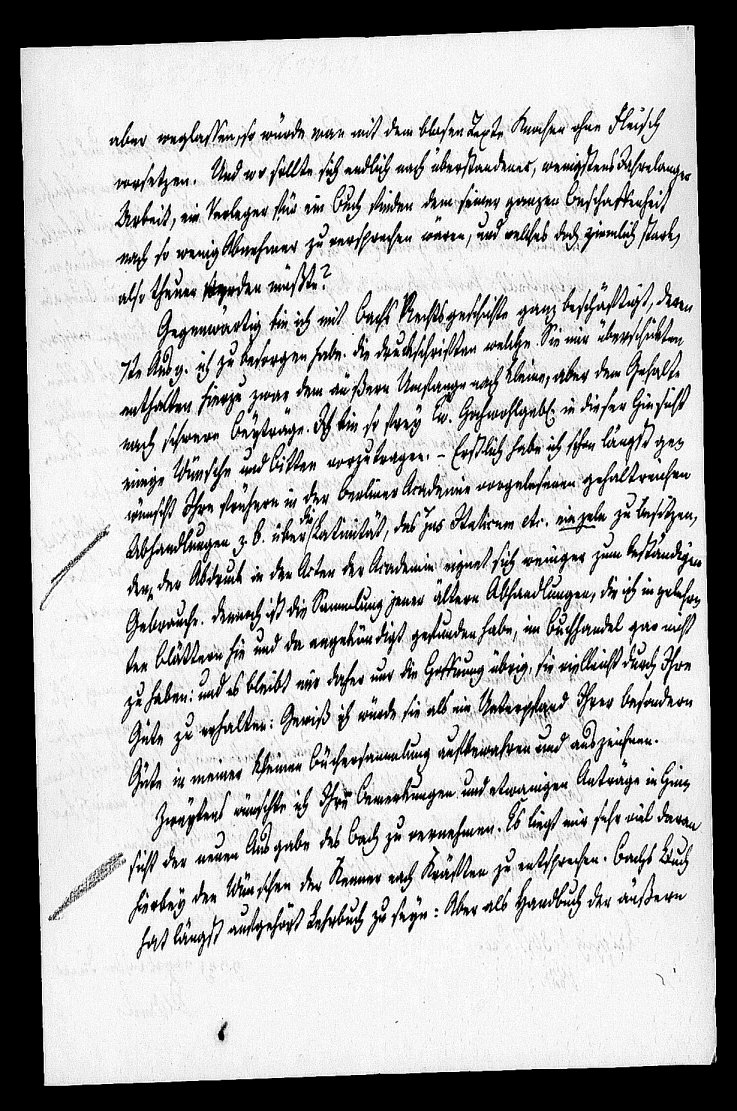 aber weglassen, so würde man mit dem blosen Texte Knochen ohne Fleisch
vorsetzen. Und wo sollte sich endlich nach überstandener, wenigstens Jahrelanger
Arbeit, ein Verleger für ein Buch finden dem seiner ganzen Beschaffenheit
nach so wenig Abnehmer zu versprechen wären, und welches doch ziemlich stark,
also theuer werden müßte?
Gegenwärtig bin ich mit Bachs Rechtsgeschichte ganz beschäftigt, deren
7te Ausg. ich zu besorgen habe. die Druckschriften welche Sie mir überschickten
enthalten hierzu zwar dem äußern Umfange nach kleine, aber dem Gehalte
nach schwere Beyträge. Ich bin so frey Ew. Hochwohlgeb. in dieser Hinsicht
einige Wünsche und Bitten vorzutragen. – Erstlich habe ich schon längst ge=
wünscht Ihre frühern in der Berliner Academie vorgelesenen gehaltreichen
Abhandlungen z. b. über die Latinität, das Jus Italicum etc. einzeln zu besitzen,
denn der Abdruck in den Acten der Academie eignet sich weniger zum beständigen
Gebrauche. Dennoch ist die Sammlung jener ältern Abhandlungen, die ich in gelehr=
ten Blättern hie und da angekündigt gefunden habe, im Buchhandel gar nicht
zu haben: und es bleibt mir daher nur die Hoffnung übrig, sie vielleicht durch Ihre
Güte zu erhalten: Gewiß ich würde sie als ein Unterpfand Ihrer besondern
Güte in meiner kleinen Büchersammlung aufbewahren und auszeichnen.
Zweytens wünschte ich Ihre Bemerkungen und etwanigen Anträge in Hin=
sicht der neuen Ausgabe des Bach zu vernehmen. Es liegt mir sehr viel daran
hierbey den Wünschen der Kenner nach Kräften zu entsprechen. Bachs Buch
hat längst aufgehört Lehrbuch zu seyn: Aber als Handbuch der äußern